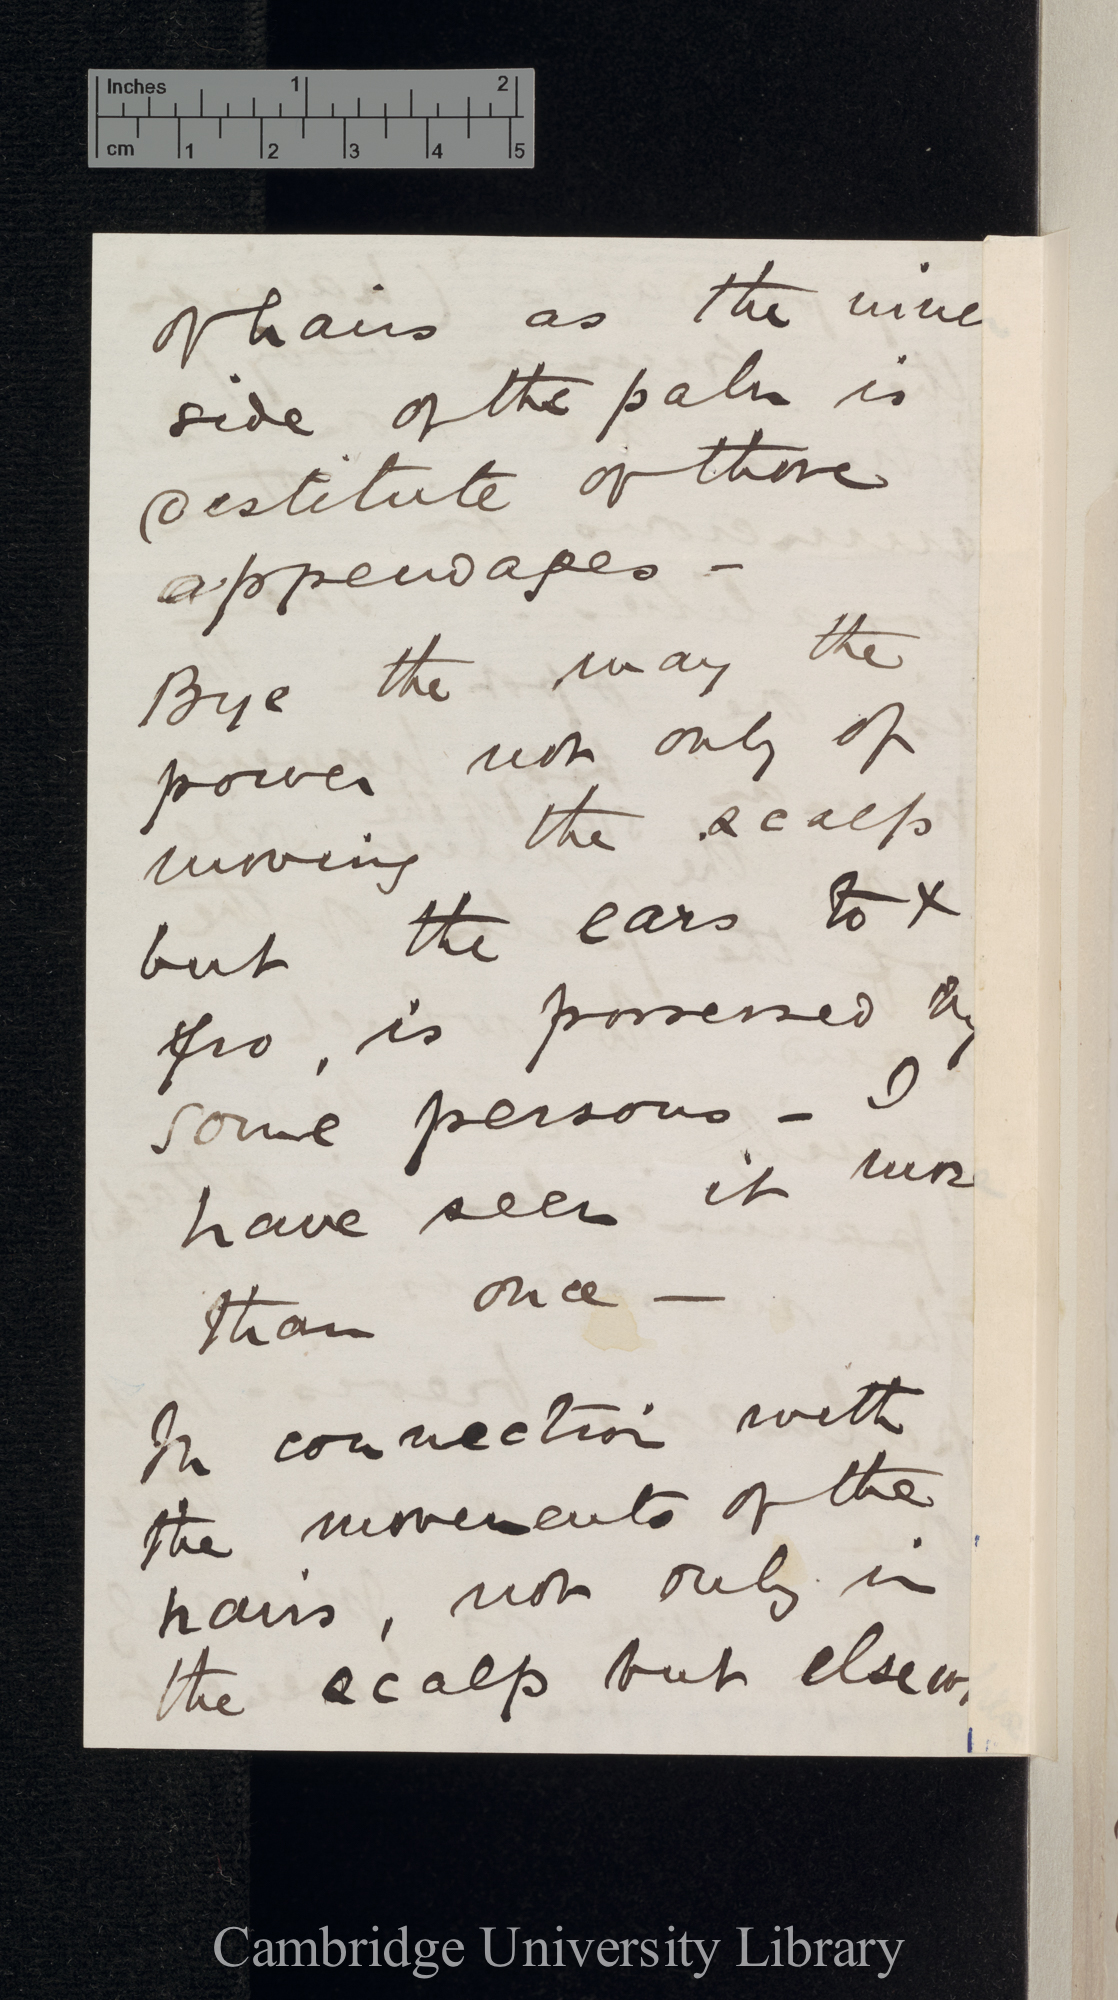 Inches 1 2
cm 1 2 3 4 5
of hairs as the
side of the palm is
destitute of those
appendages -
Bye the way the
power not only of
moving the scalp
but the ears to &
fro, is possessed by
some persons - I
have seen it more
than once -
In connection with
the movements of the
hairs, not only in
the scalp but elsew
Cambridge University Library